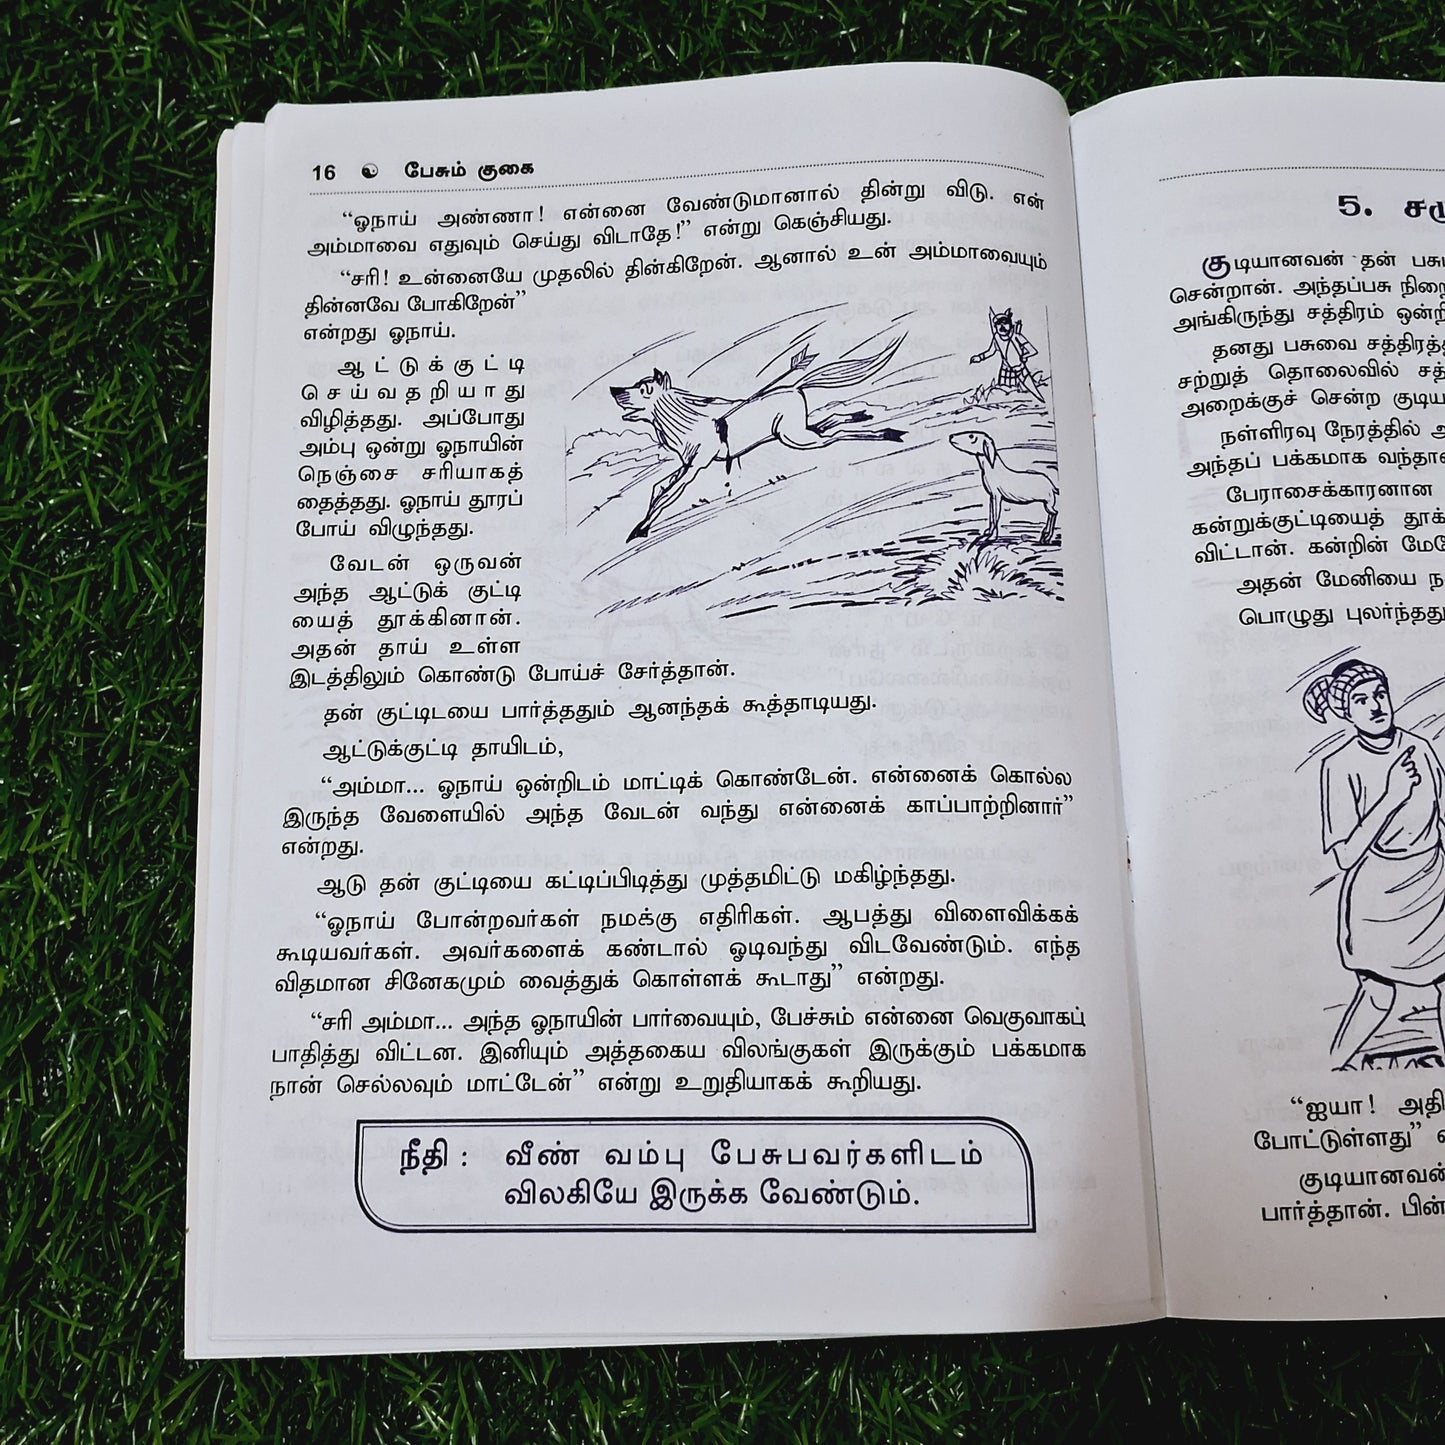 16 ☯ பேசும் குகை
“ஓநாய் அண்ணா! என்னை வேண்டுமானால் தின்று விடு. என்
அம்மாவை எதுவும் செய்து விடாதே!” என்று கெஞ்சியது.
“சரி! உன்னையே முதலில் தின்கிறேன். ஆனால் உன் அம்மாவையும்
தின்னவே போகிறேன்”
என்றது ஓநாய்.
ஆட்டுக்குட்டி
செய்வதறியாது
விழித்தது. அப்போது
அம்பு ஒன்று ஓநாயின்
நெஞ்சை சரியாகத்
தைத்தது. ஓநாய் தூரப்
போய் விழுந்தது.
வேடன் ஒருவன்
அந்த ஆட்டுக் குட்டி
யைத் தூக்கினான்.
அதன் தாய் உள்ள
இடத்திலும் கொண்டு போய்ச் சேர்த்தான்.
தன் குட்டிடயை பார்த்ததும் ஆனந்தக் கூத்தாடியது.
ஆட்டுக்குட்டி தாயிடம்,
“அம்மா... ஓநாய் ஒன்றிடம் மாட்டிக் கொண்டேன். என்னைக் கொல்ல
இருந்த வேளையில் அந்த வேடன் வந்து என்னைக் காப்பாற்றினார்”
என்றது.
ஆடு தன் குட்டியை கட்டிப்பிடித்து முத்தமிட்டு மகிழ்ந்தது.
“ஓநாய் போன்றவர்கள் நமக்கு எதிரிகள். ஆபத்து விளைவிக்கக்
கூடியவர்கள். அவர்களைக் கண்டால் ஓடிவந்து விடவேண்டும். எந்த
விதமான சினேகமும் வைத்துக் கொள்ளக் கூடாது” என்றது.
“சரி அம்மா... அந்த ஓநாயின் பார்வையும், பேச்சும் என்னை வெகுவாகப்
பாதித்து விட்டன. இனியும் அத்தகைய விலங்குகள் இருக்கும் பக்கமாக
நான் செல்லவும் மாட்டேன்” என்று உறுதியாகக் கூறியது.
நீதி : வீண் வம்பு பேசுபவர்களிடம்
விலகியே இருக்க வேண்டும்.
5.
குடியானவன் தன்
சென்றான். அந்தப்பசு
அங்கிருந்து சத்திரம்
தனது பசுவை
சற்றுத் தொலைவில்
அறைக்குச் சென்ற
நள்ளிரவு நேரத்தில்
அந்தப் பக்கமாக
பேராசைக்காரனான
கன்றுக்குட்டியைத்
விட்டான். கன்றின்
அதன் மேனியை
பொழுது புலர்ந்தது
“ஐயா!
போட்டுள்ளது”
குடியானவன்
பார்த்தான்.